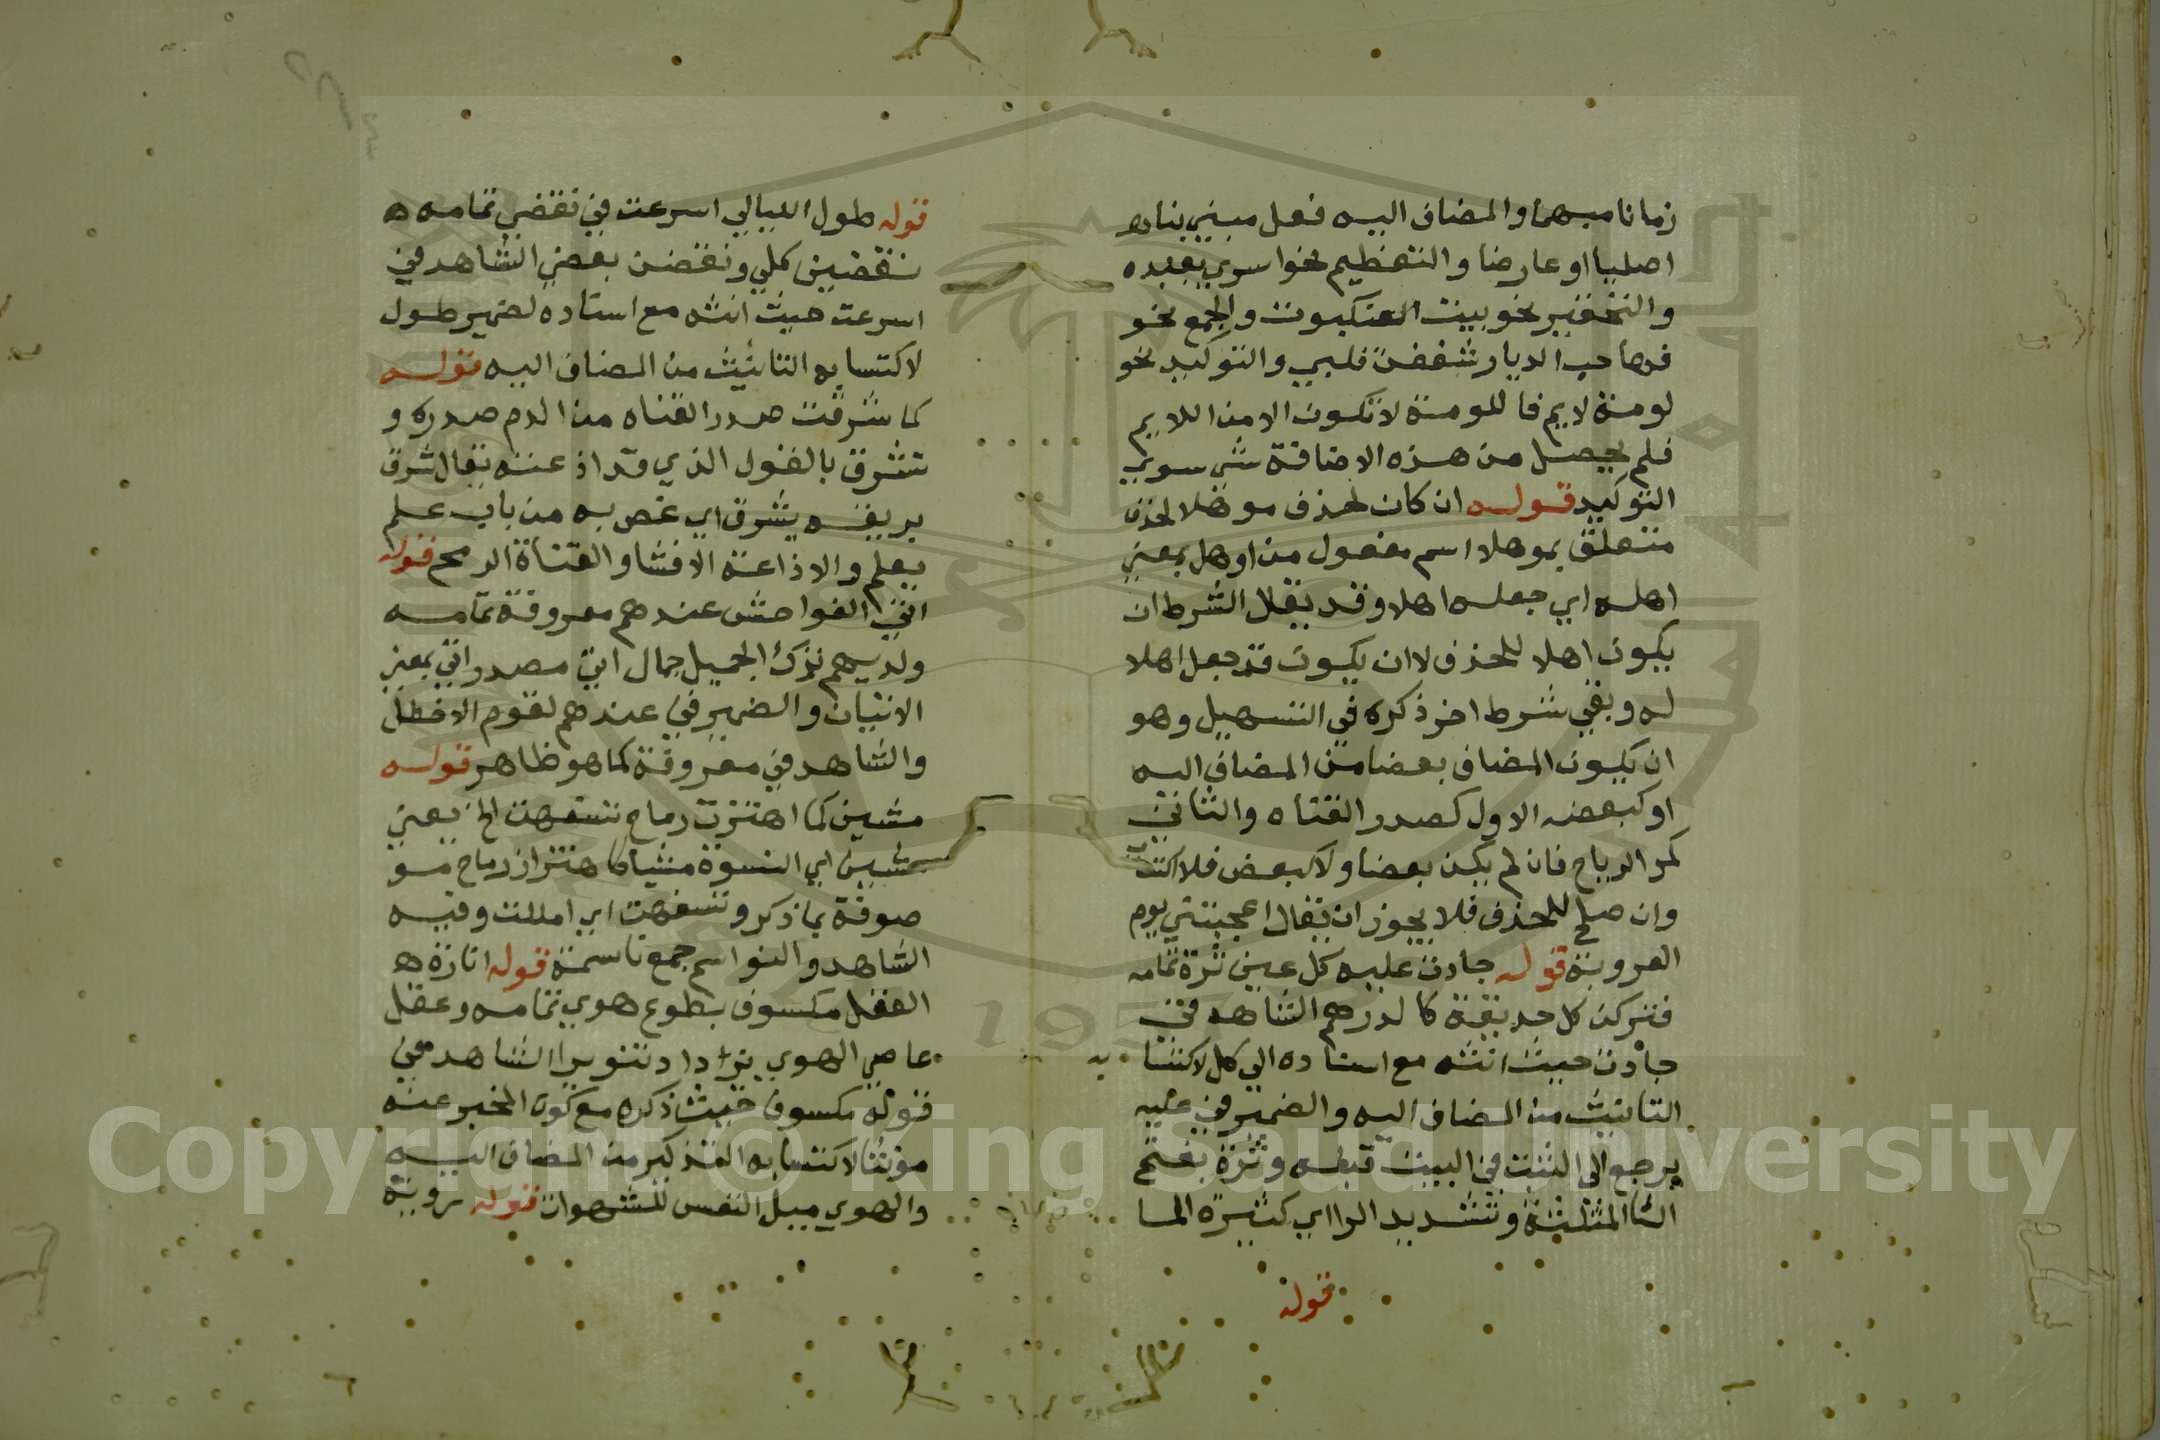 زمانا مبهما والمضاف اليه فعل مبني بناء
اصليا او عارضا والتعظيم نحو اسري بعبده
والتحقير نحو بيت العنكبوت والجمع نحو
فما حب الديار شغفن قلبي والتوكيد نحو
لومة لايم فاللومة لا تكون الا من اللايم
فلم يحصل من هذه الاضافة شي سوي
التوكيد قوله ان كان لحذف موهلا لحذف
متعلق بموهلا اسم مفعول من اوهل بمعني
اهله اي جعله اهلا وقد يقال الشرط ان
يكون اهلا للحذف لا ان يكون قد جعل اهلا
له وبقي شرط اخر ذكره في التسهيل وهو
ان يكون المضاف بعضا من المضاف اليه
او كبعضه الاول كصدر القناه والثاني
كمر الرياح فان لم يكن بعضا ولا كبعض فلا اكتساب
وان صلح للحذف فلا يجوز ان يقال اعجبتني يوم
العروبة قوله جادت عليه كل عين ثرة تمامه
فتركن كل حديقة كالدرهم الشاهد في
جادت حيث انثه مع اسناده الي كل لاكتسابه
التانيث من المضاف اليه والضمير في عليه
يرجع الي النبت في البيت قبله وثرة بفتح
الثا المثلثة وتشديد الرا اي كثيرة الما
قوله
قوله طول الليالي اسرعت في نقضي تمامه
نقضين كلي ونقضن بعضي الشاهد في
اسرعت حيث انثه مع اسناده لضمير طول
لاكتسابه التانيث من المضاف اليه قوله
كما شرقت صدر القناه من الدم صدره و
تشرق بالقول الذي قد اذعته يقال شرق
بريقه يشرق اي غص به من باب علم
يعلم والاذاعة الافشا والقناة الرمح قوله
اتي الفواحش عندهم معروفة تمامه
ولديهم ترك الجميل جمال اتي مصدر اتي بمعني
الاتيان والضمير في عندهم لقوم الاخطل
والشاهد في معروفة كما هو ظاهر قوله
مشين كما اهتزت رماح تسفهت الخ يعني
مشين اي النسوة مشيا كاهتزاز رماح مو
صوفة بما ذكر وتسفهت اي امالت وفيه
الشاهد والنواسم جمع ناسمة قوله انارة
العقل مكسوف بطوع هوي تمامه وعقل
عاصي الهوي يزداد تنويرا الشاهد في
قوله مكسوف حيث ذكره مع كون المخبر عنه
مؤنثا لاكتسابه التذكير من المضاف اليه
والهوي ميل النفس للشهوات قوله روية
Copyright © King Saud University